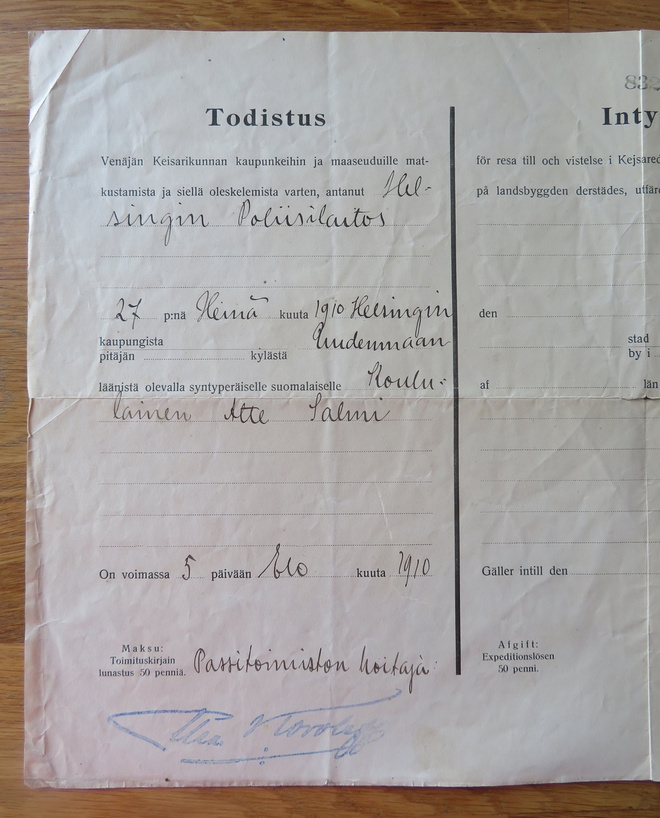 Todistus
Venäjän Keisarikunnan kaupunkeihin ja maaseuduille mat-
kustamista ja siellä oleskelemista varten, antanut Hel-
singin Poliisilaitos
27 p:nä Heinä kuuta 1910 Helsingin
kaupungista
pitäjän kylästä Uudenmaan
läänistä olevalla syntyperäiselle suomalaiselle Koulu-
lainen Atte Salmi
On voimassa 5 päivään Elo kuuta 1910
Maksu:
Toimituskirjain
lunastus 50 penniä. Passitoimiston hoitaja
832
Inty
för resa till och vistelse i Kejsared
på landsbygden derstädes, utfär
den
stad
by i
af län
Gäller intill den
Afgift:
Expeditionslösen
50 penni.